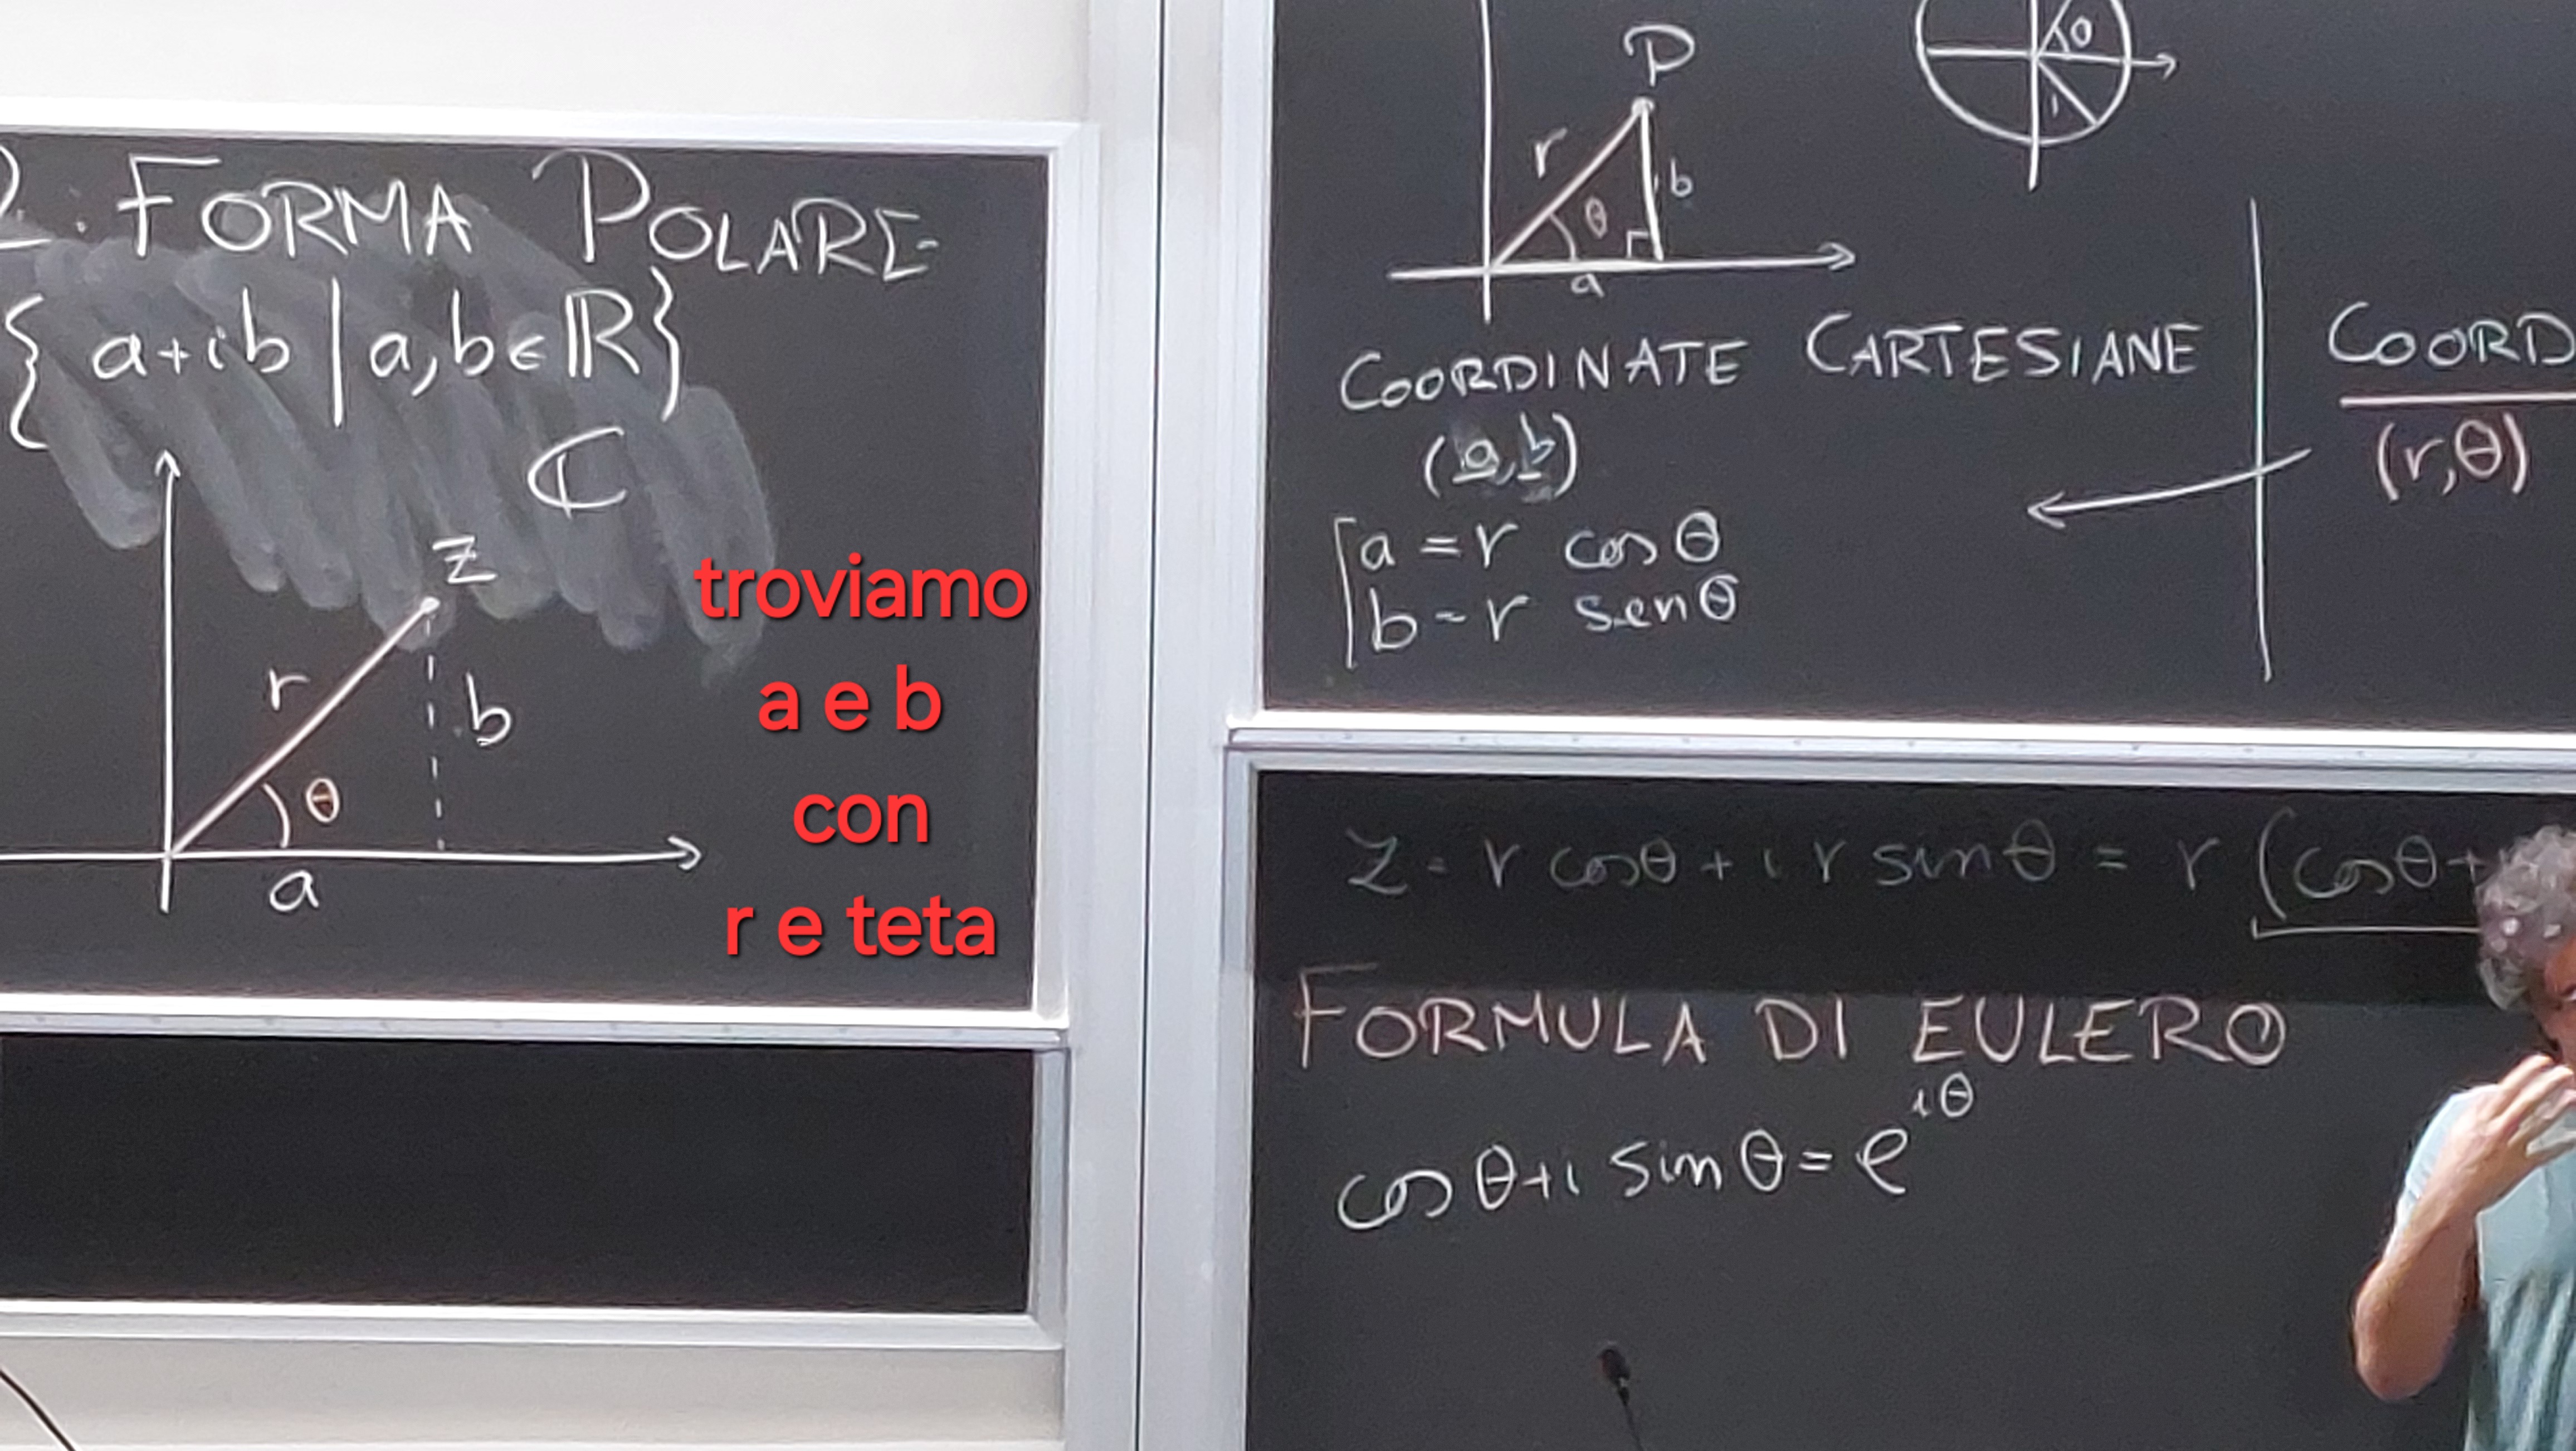 2. FORMA POLARE
{ a+ib | a,b∈ℝ}
ℂ
z
r
b
θ
a
troviamo
a e b
con
r e teta
P
r
b
θ
a
COORDINATE CARTESIANE
(a,b)
a = r cos θ
b = r sen θ
COORD
(r,θ)
z = r cosθ + i r sin θ = r (cosθ+
FORMULA DI EULERO
cos θ+i sin θ = e^iθ